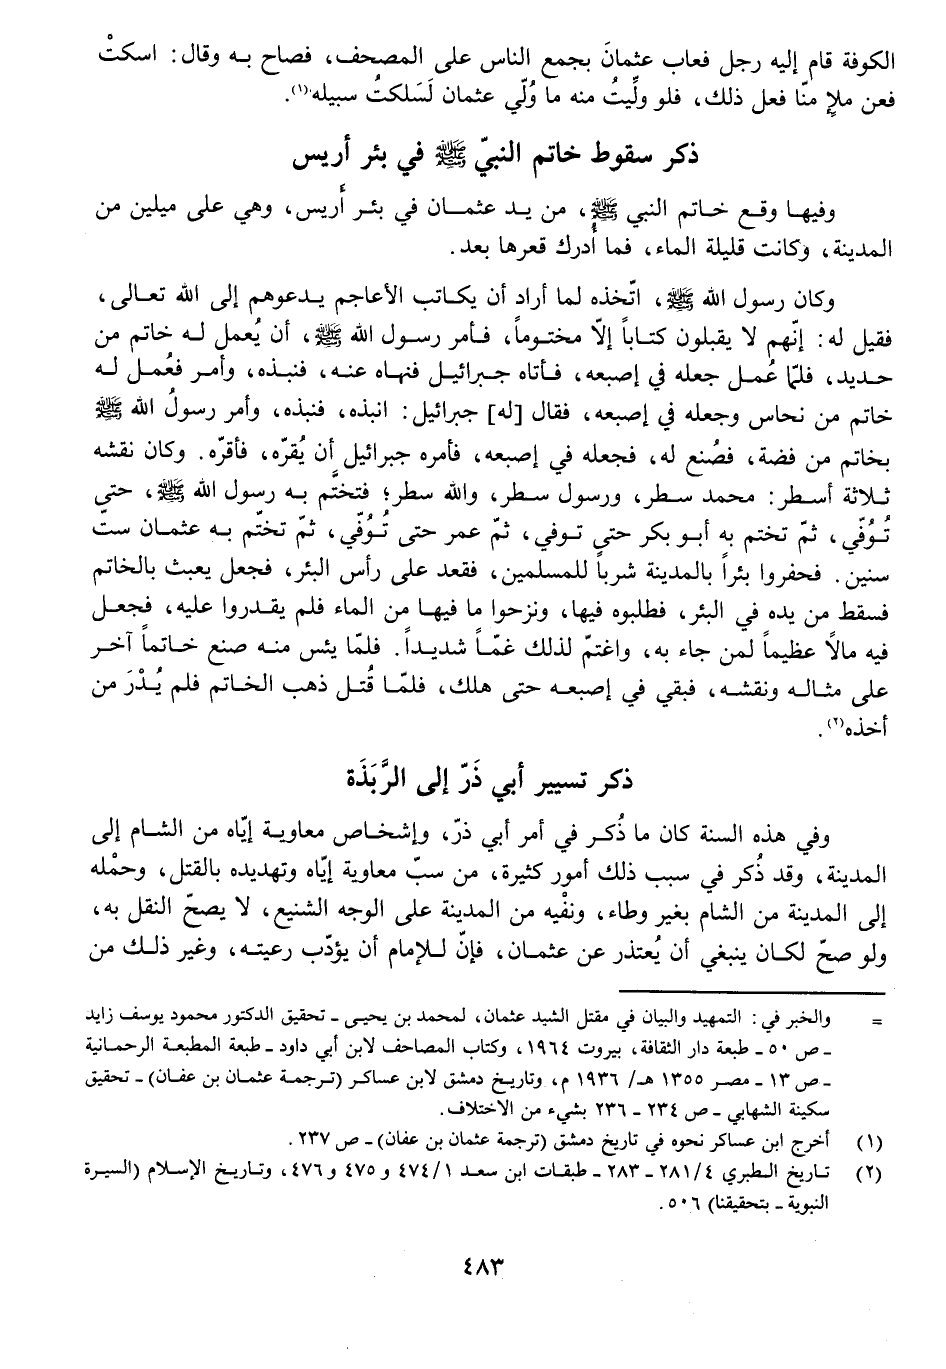 الكوفة قام إليه رجل فعاب عثمانَ بجمع الناس على المصحف، فصاح به وقال: اسكتْ
فعن ملإٍ منّا فعل ذلك، فلو ولِّيتُ منه ما وُلّي عثمان لَسَلكتُ سبيله(١).
ذكر سقوط خاتم النبيّ ﷺ في بئر أريس
وفيها وقع خاتم النبي ﷺ، من يد عثمان في بئر أَريس، وهي على ميلين من
المدينة، وكانت قليلة الماء، فما أُدرك قعرها بعد.
وكان رسول الله ﷺ، اتّخذه لما أراد أن يكاتب الأعاجم يدعوهم إلى الله تعالى،
فقيل له: إنّهم لا يقبلون كتاباً إلاّ مختوماً، فأمر رسول الله ﷺ، أن يُعمل له خاتم من
حديد، فلمّا عُمل جعله في إصبعه، فأتاه جبرائيل فنهاه عنه، فنبذه، وأمر فعُمل له
خاتم من نحاس وجعله في إصبعه، فقال [له] جبرائيل: انبذه، فنبذه، وأمر رسولُ الله ﷺ
بخاتم من فضة، فصُنع له، فجعله في إصبعه، فأمره جبرائيل أن يُقرّه، فأقرّه. وكان نقشه
ثلاثة أسطر: محمد سطر، ورسول سطر، والله سطر؛ فتختَّم به رسول الله ﷺ، حتى
تُوُفّي، ثمّ تختم به أبو بكر حتى توفي، ثمّ عمر حتى تُوُفّي، ثمّ تختّم به عثمان ستّ
سنين. فحفروا بئراً بالمدينة شرباً للمسلمين، فقعد على رأس البئر، فجعل يعبث بالخاتم
فسقط من يده في البئر، فطلبوه فيها، ونزحوا ما فيها من الماء فلم يقدروا عليه، فجعل
فيه مالاً عظيماً لمن جاء به، واغتمّ لذلك غمّاً شديداً. فلمّا يئس منه صنع خاتماً آخر
على مثاله ونقشه، فبقي في إصبعه حتى هلك، فلمّا قُتل ذهب الخاتم فلم يُدْرَ من
أخذه(٢).
ذكر تسيير أبي ذَرّ إلى الرَّبَذَة
وفي هذه السنة كان ما ذُكر في أمر أبي ذرّ، وإشخاص معاوية إيّاه من الشام إلى
المدينة، وقد ذُكر في سبب ذلك أمور كثيرة، من سبّ معاوية إيّاه وتهديده بالقتل، وحمْله
إلى المدينة من الشام بغير وطاء، ونفْيه من المدينة على الوجه الشنيع، لا يصحّ النقل به،
ولو صحّ لكان ينبغي أن يُعتذر عن عثمان، فإنّ للإمام أن يؤدّب رعيته، وغير ذلك من
= والخبر في: التمهيد والبيان في مقتل الشيد عثمان، لمحمد بن يحيى - تحقيق الدكتور محمود يوسف زايد
- ص ٥٠ - طبعة دار الثقافة، بيروت ١٩٦٤، وكتاب المصاحف لابن أبي داود - طبعة المطبعة الرحمانية
- ص ١٣ - مصر ١٣٥٥ هـ/ ١٩٣٦ م، وتاريخ دمشق لابن عساكر (ترجمة عثمان بن عفان) - تحقيق
سكينة الشهابي - ص ٢٣٤ - ٢٣٦ بشيء من الاختلاف.
(١) أخرج ابن عساكر نحوه في تاريخ دمشق (ترجمة عثمان بن عفان) - ص ٢٣٧.
(٢) تاريخ الطبري ٤/ ٢٨١ - ٢٨٣ - طبقات ابن سعد ١/ ٤٧٤ و ٤٧٥ و ٤٧٦، وتاريخ الإسلام (السيرة
النبوية - بتحقيقنا) ٥٠٦.
٤٨٣